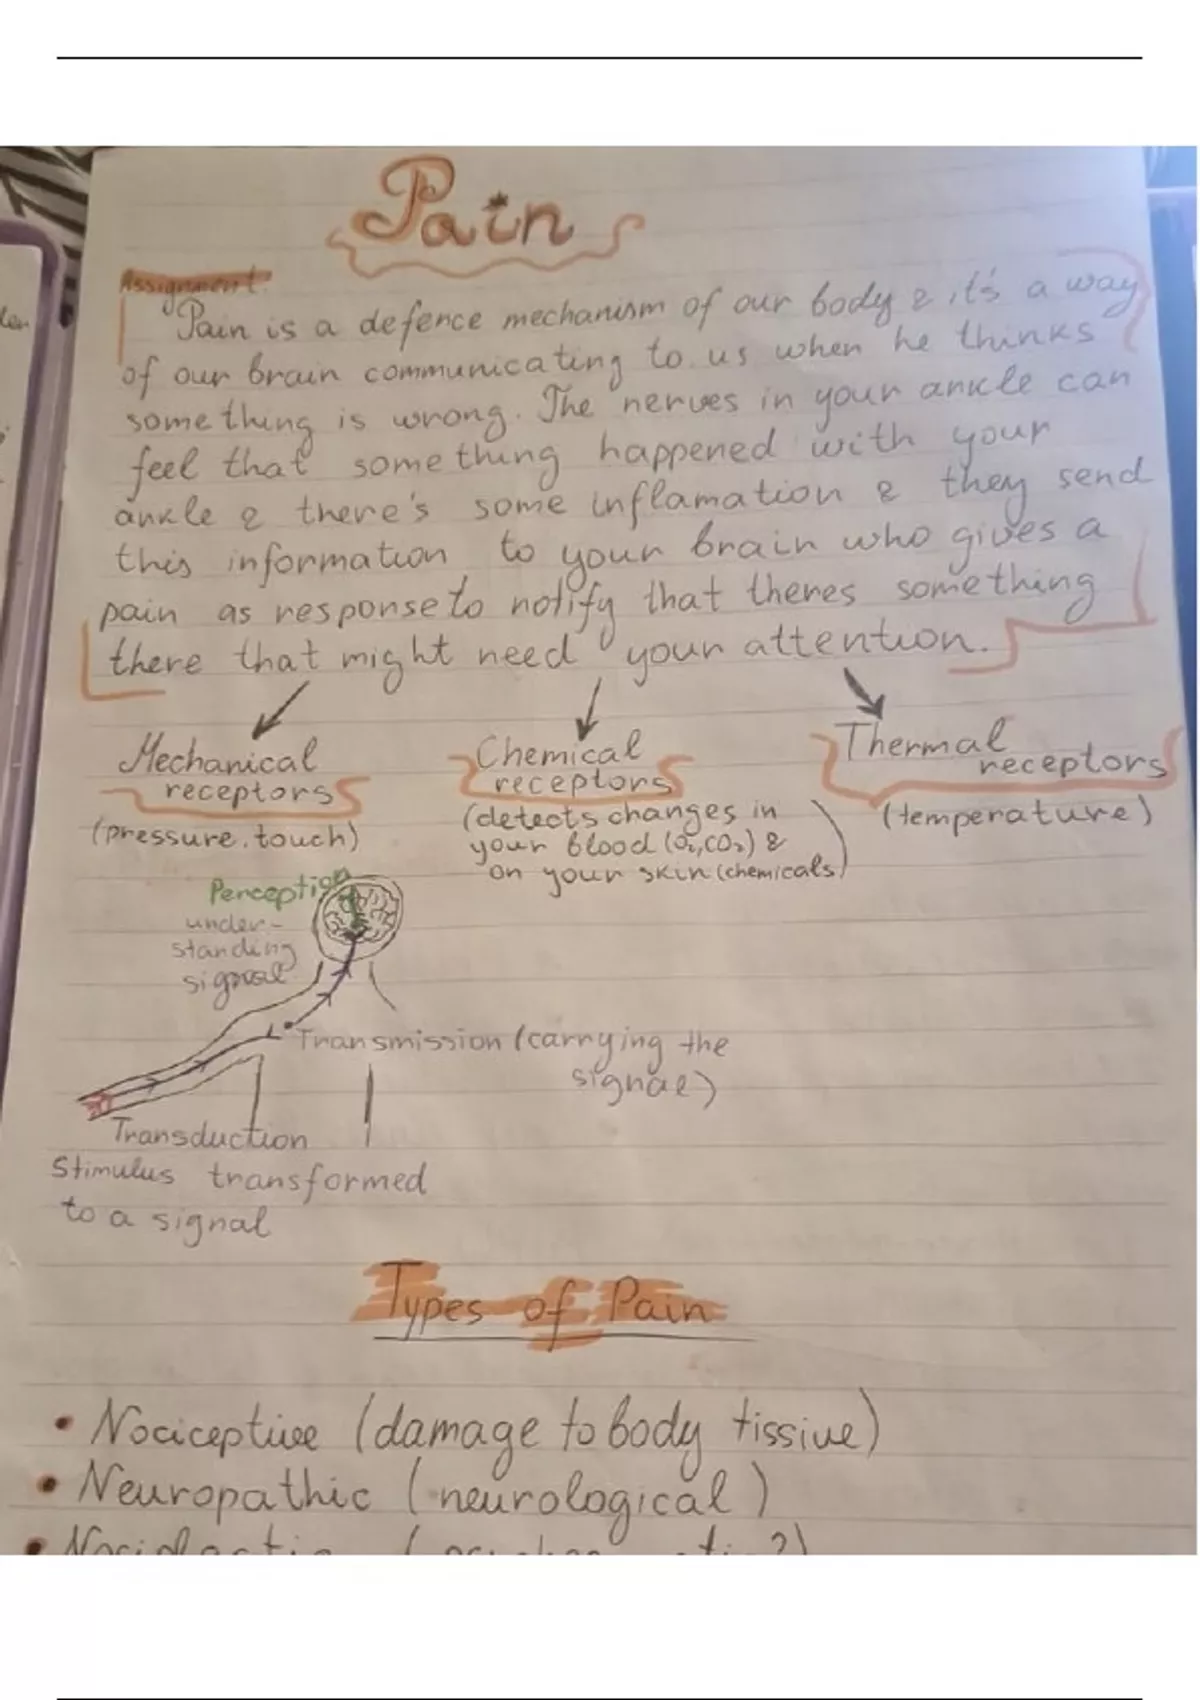 Pain
Assignment:
Pain is a defence mechanism of our body & it's a way
of our brain communicating to us when he thinks
something is wrong. The nerves in your ankle can
feel that something happened with your
ankle & there's some inflamation & they send
this information to your brain who gives a
pain as response to notify that theres something
there that might need your attention.
Mechanical
receptors
(pressure, touch)
Chemical
receptors
(detects changes in
your blood (O₂, CO₂) &
on your skin (chemicals)
Thermal
receptors
(temperature)
Perception
under-
standing
signal
Transmission (carrying the
signal)
Transduction
Stimulus transformed
to a signal
Types of Pain
• Nociceptive (damage to body tissive)
• Neuropathic (neurological)